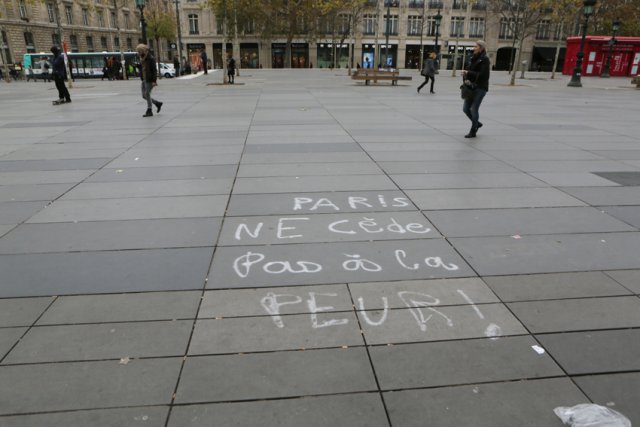 PARIS
NE Cède
Pas à la
PEUR!